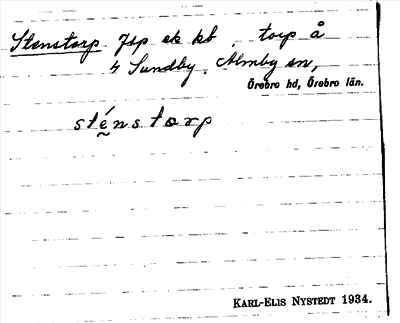 Stenstorp Jsp ek kb, torp å
4 Sundby, Almby sn,
Örebro hd, Örebro län.
sténstorp
KARL-ELIS NYSTEDT 1934.